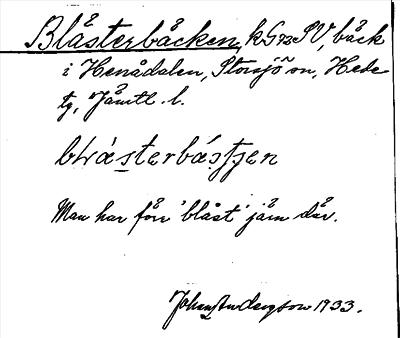 Blåsterbäcken, kGrz SV, bäck
i Henådalen, Storsjö sn, Hede
tg, Jämtl. l.
blåsterbásten
Man har förr 'blåst' järn där.
Johan Andersson 1933.